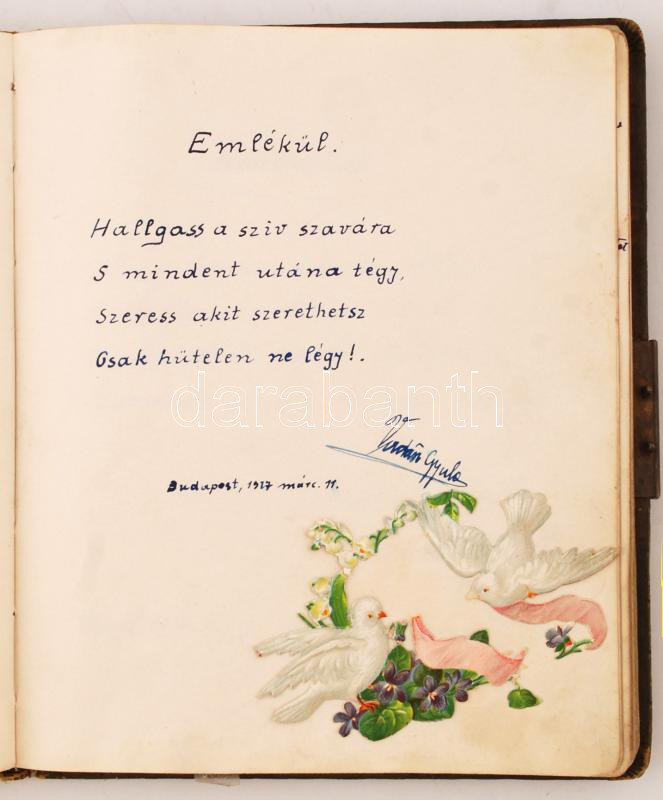 Emlékül.
Hallgass a sziv szavára
S mindent utána tégy,
Szeress akit szerethetsz
Csak hütelen ne légy!.
Gyula
Budapest, 1917 márc. 11.
darabanth